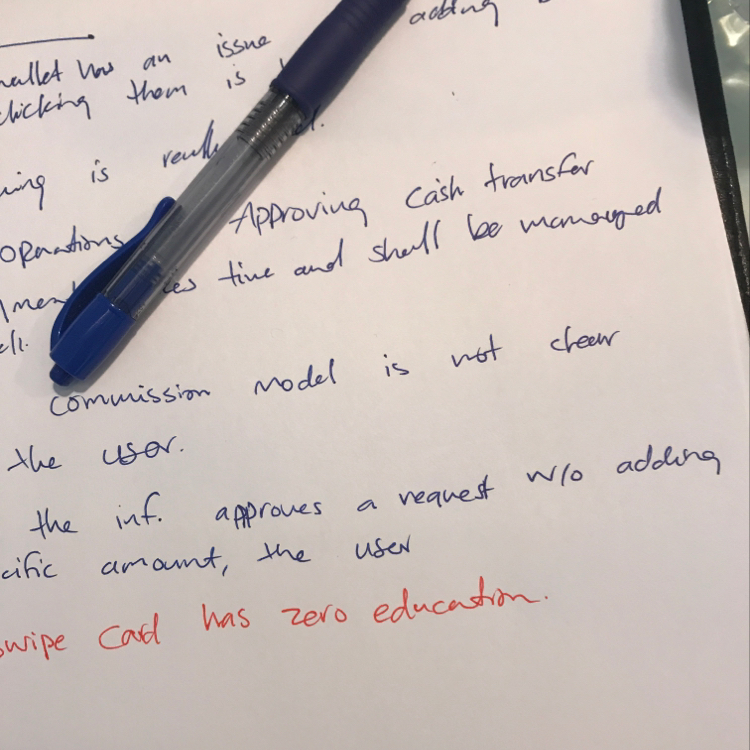 adding
wallet has an issue
clicking them is
is
Operations Approving Cash transfer
time and shall be managed
commission model is not clear
the user.
the inf. approves a request w/o adding
cific amount, the user
swipe card has zero education.